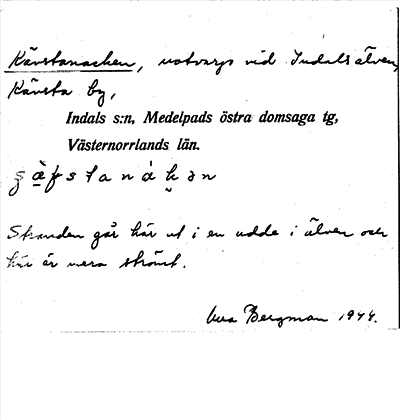 Kävstanacken, notvarp vid Indalsälven,
Kävsta by,
Indals s:n, Medelpads östra domsaga tg,
Västernorrlands län.
Stranden går här ut i en udde i älven och
här är mera strömt.
Bergman 1944.